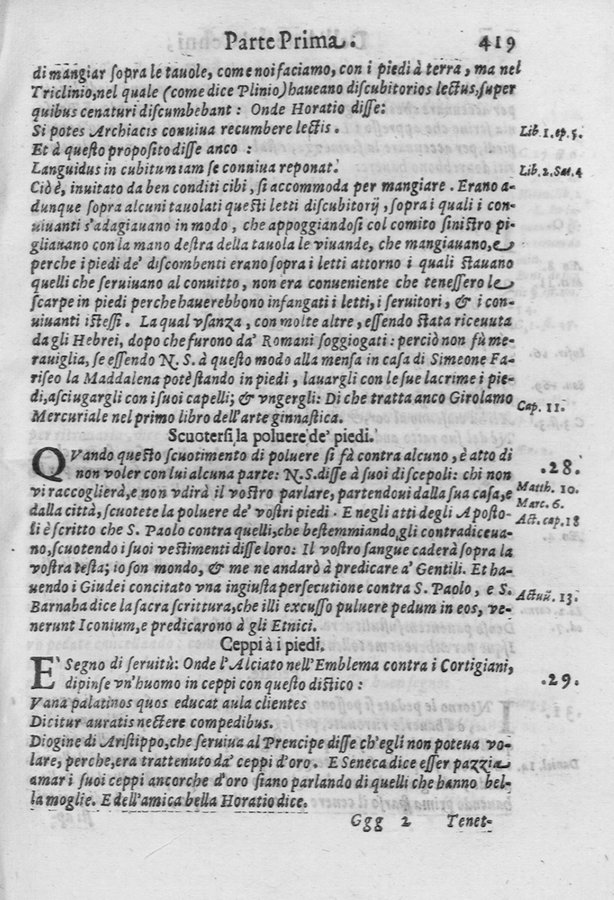 Parte Prima. 419
di mangiar ſopra le tauole, come noi faciamo, con i piedi à terra, ma nel
Triclinio, nel quale (come dice Plinio) haueano diſcubitorios lectus, ſuper
quibus cenaturi diſcumbebant: Onde Horatio diſſe:
Si potes Archiacis conuiua recumbere lectis. Lib. 1. ep. 5.
Et à queſto propoſito diſſe anco:
Languidus in cubitum iam ſe conniua reponat. Lib. 2. Sat. 4
Ciò è, inuitato da ben conditi cibi, ſi accommoda per mangiare. Erano a-
dunque ſopra alcuni tauolati queſti letti diſcubitorij, ſopra i quali i con-
uiuanti s'adagiauano in modo, che appoggiandoſi col comito ſiniſtro pi-
gliauano con la mano deſtra della tauola le viuande, che mangiauano, e
perche i piedi de' diſcombenti erano ſopra i letti attorno i quali ſtauano
quelli che ſeruiuano al conuitto, non era conueniente che teneſſero le
ſcarpe in piedi perche hauerebbono infangati i letti, i ſeruitori, & i con-
uiuanti iſteſſi. La qual vſanza, con molte altre, eſſendo ſtata riceuuta
da gli Hebrei, dopo che furono da' Romani ſoggiogati: perciò non fù me-
rauiglia, ſe eſſendo N. S. à queſto modo alla menſa in caſa di Simeone Fa-
riſeo la Maddalena potè ſtando in piedi, lauargli con le ſue lacrime i pie-
di, aſciugargli con i ſuoi capelli; & vngergli: Di che tratta anco Girolamo
Mercuriale nel primo libro dell'arte ginnaſtica. Cap. 11.
Scuoterſi la poluere de' piedi.
QVando queſto ſcuotimento di poluere ſi fà contra alcuno, è atto di .28.
non voler con lui alcuna parte: N.S. diſſe à ſuoi diſcepoli: chi non
vi raccoglierà, e non vdirà il voſtro parlare, partendoui dalla ſua caſa, e Matth. 10.
dalla città, ſcuotete la poluere de' voſtri piedi. E negli atti degli Apoſto- Marc. 6.
li è ſcritto che S. Paolo contra quelli, che beſtemmiando, gli contradiceua- Act. cap. 18
no, ſcuotendo i ſuoi veſtimenti diſſe loro: Il voſtro ſangue caderà ſopra la
voſtra teſta; io ſon mondo, & me ne andarò à predicare a' Gentili. Et ha-
uendo i Giudei concitato vna ingiuſta perſecutione contra S. Paolo, e S.
Barnaba dice la ſacra ſcrittura, che illi excuſſo puluere pedum in eos, ve- 13.
nerunt Iconium, e predicarono à gli Etnici.
Ceppi à i piedi.
E' Segno di ſeruitù: Onde l'Alciato nell'Emblema contra i Cortigiani, .29.
dipinſe vn'huomo in ceppi con queſto diſtico:
Vana palatinos quos educat aula clientes
Dicitur auratis nectere compedibus.
Diogine di Ariſtippo, che ſeruiua al Prencipe diſſe ch'egli non poteua vo-
lare, perche, era trattenuto da' ceppi d'oro. E Seneca dice eſſer pazzia
amar i ſuoi ceppi ancorche d'oro ſiano parlando di quelli che hanno bel-
la moglie. E dell'amica bella Horatio dice.
Ggg 2 Tenet-